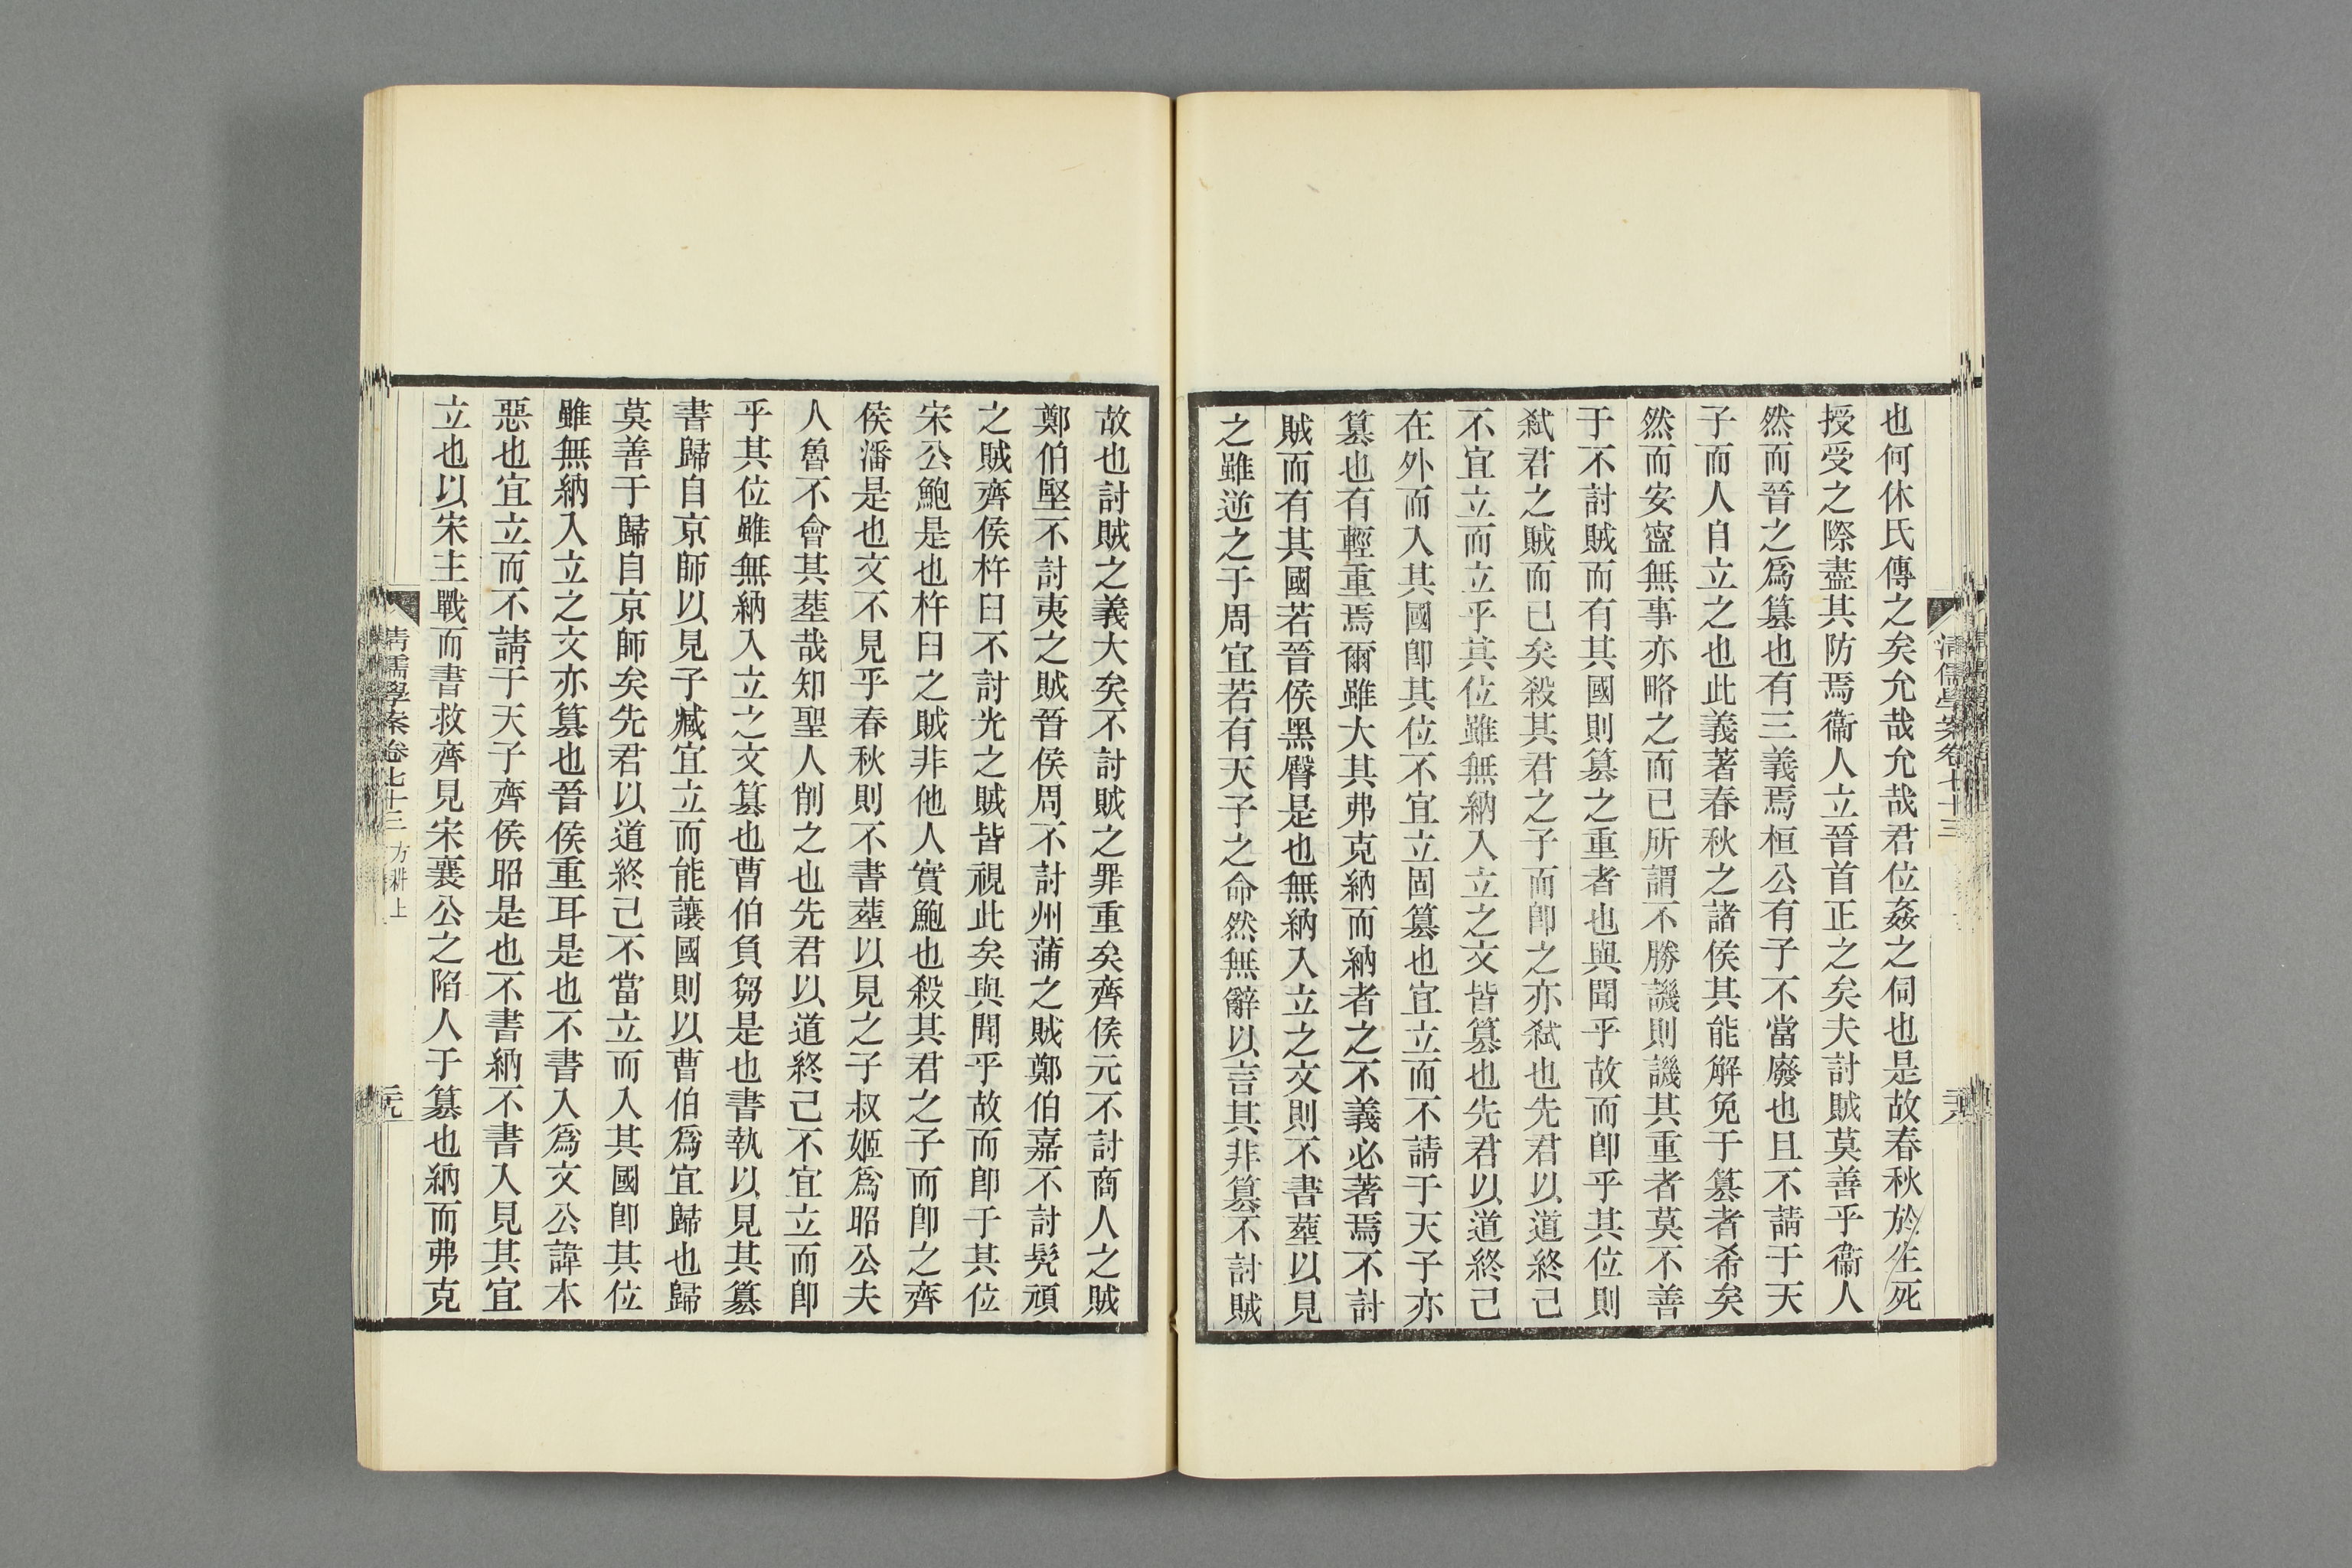 也何休氏傳之矣允哉允哉君位姦之伺也是故春秋於生死
授受之際盡其防焉衞人立晉首正之矣夫討賊莫善乎衞人
然而晉之爲篡也有三義焉桓公有子不當廢也且不請于天
子而人自立之也此義著春秋之諸侯其能解免于篡者希矣
然而安寍無事亦略之而已所謂不勝譏則譏其重者莫不善
于不討賊而有其國則篡之重者也與聞乎故而卽乎其位則
弑君之賊而已矣殺其君之子而卽之亦弑也先君以道終己
不宜立而立乎其位雖無納入立之文皆篡也先君以道終己
在外而入其國卽其位不宜立固篡也宜立而不請于天子亦
篡也有輕重焉爾雖大其弗克納而納者之不義必著焉不討
賊而有其國若晉侯黑臀是也無納入立之文則不書葬以見
之雖逆之于周宜若有天子之命然無辭以言其非篡不討賊
清儒學案卷七十三
故也討賊之義大矣不討賊之罪重矣齊侯元不討商人之賊
鄭伯堅不討夷之賊晉侯周不討州蒲之賊鄭伯嘉不討髡頑
之賊齊侯杵臼不討光之賊皆視此矣與聞乎故而卽于其位
宋公鮑是也杵臼之賊非他人實鮑也殺其君之子而卽之齊
侯潘是也文不見乎春秋則不書葬以見之子叔姬爲昭公夫
人魯不會其葬哉知聖人削之也先君以道終己不宜立而卽
乎其位雖無納入立之文篡也曹伯負芻是也書執以見其篡
書歸自京師以見子臧宜立而能讓國則以曹伯爲宜歸也歸
莫善于歸自京師矣先君以道終己不當立而入其國卽其位
雖無納入立之文亦篡也晉侯重耳是也不書入爲文公諱本
惡也宜立而不請于天子齊侯昭是也不書納不書入見其宜
立也以宋主戰而書救齊見宋襄公之陷人于篡也納而弗克
清儒學案卷七十三 方耕上
元